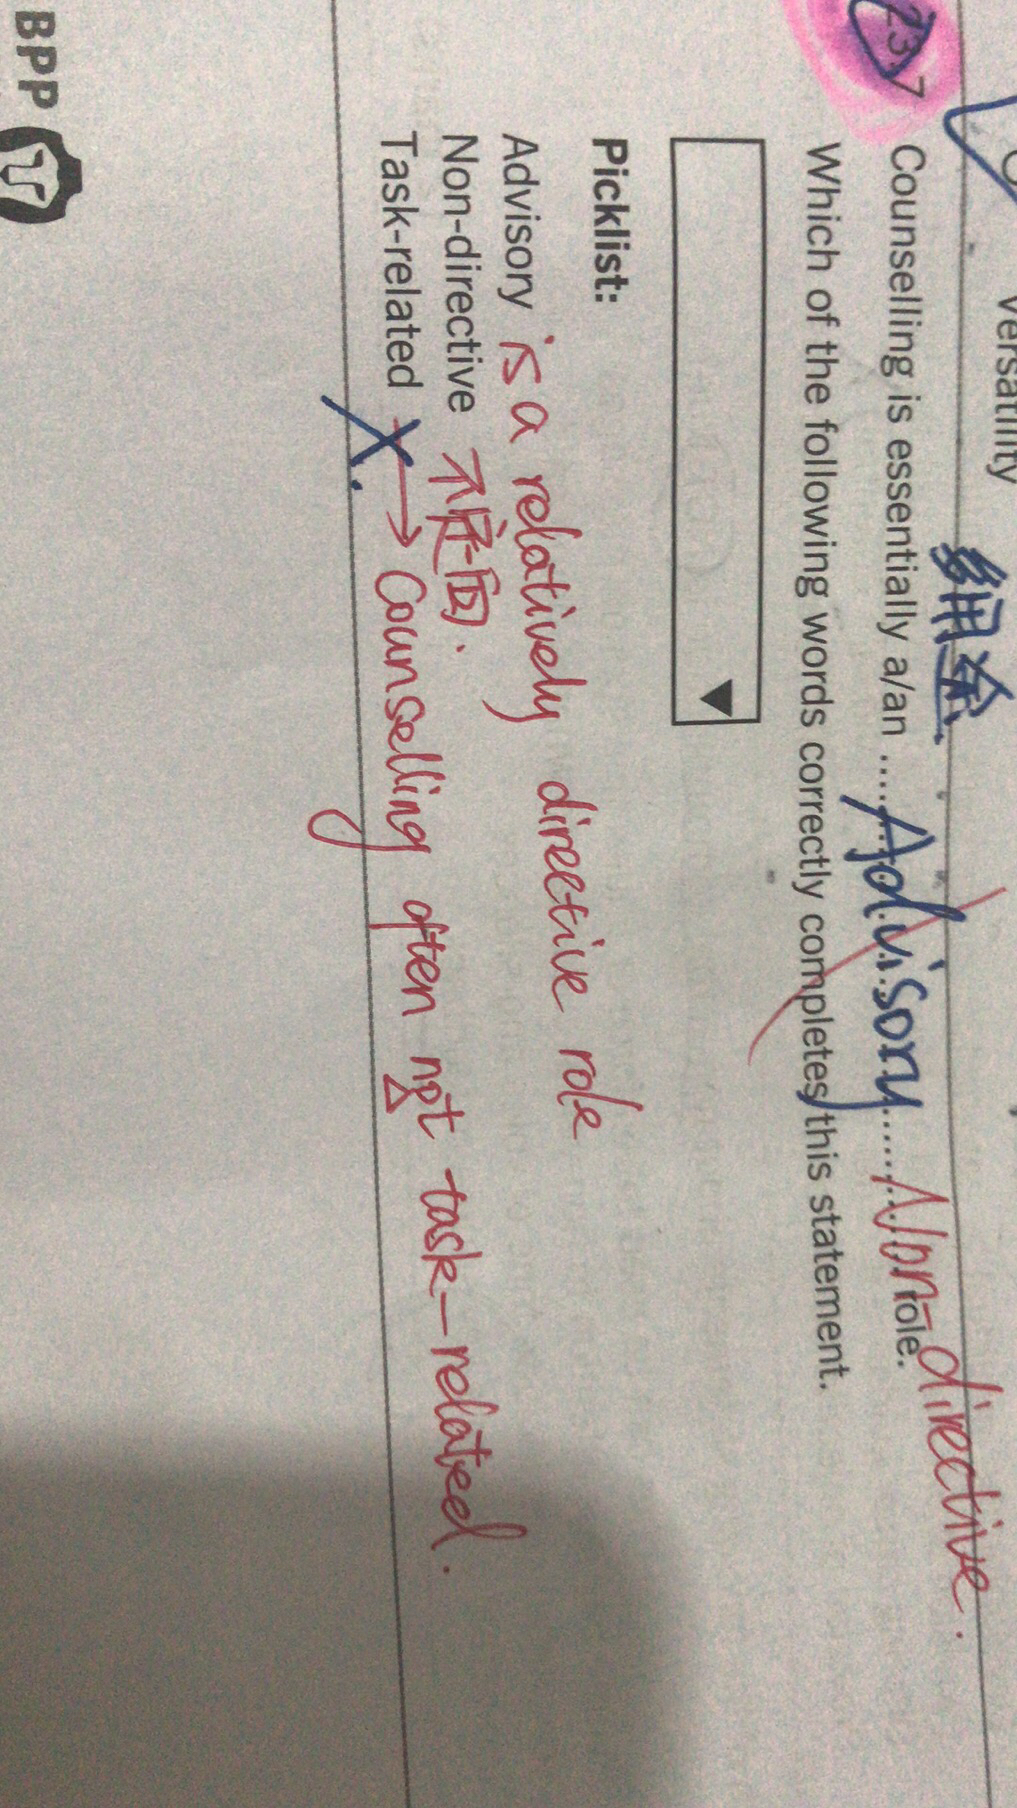 versatility
23.7 Counselling is essentially a/an ..... Advisory ..... role. Non-directive.
Which of the following words correctly completes this statement.
Picklist:
Advisory is a relatively directive role
Non-directive
Task-related → Counselling often not task-related.
BPP